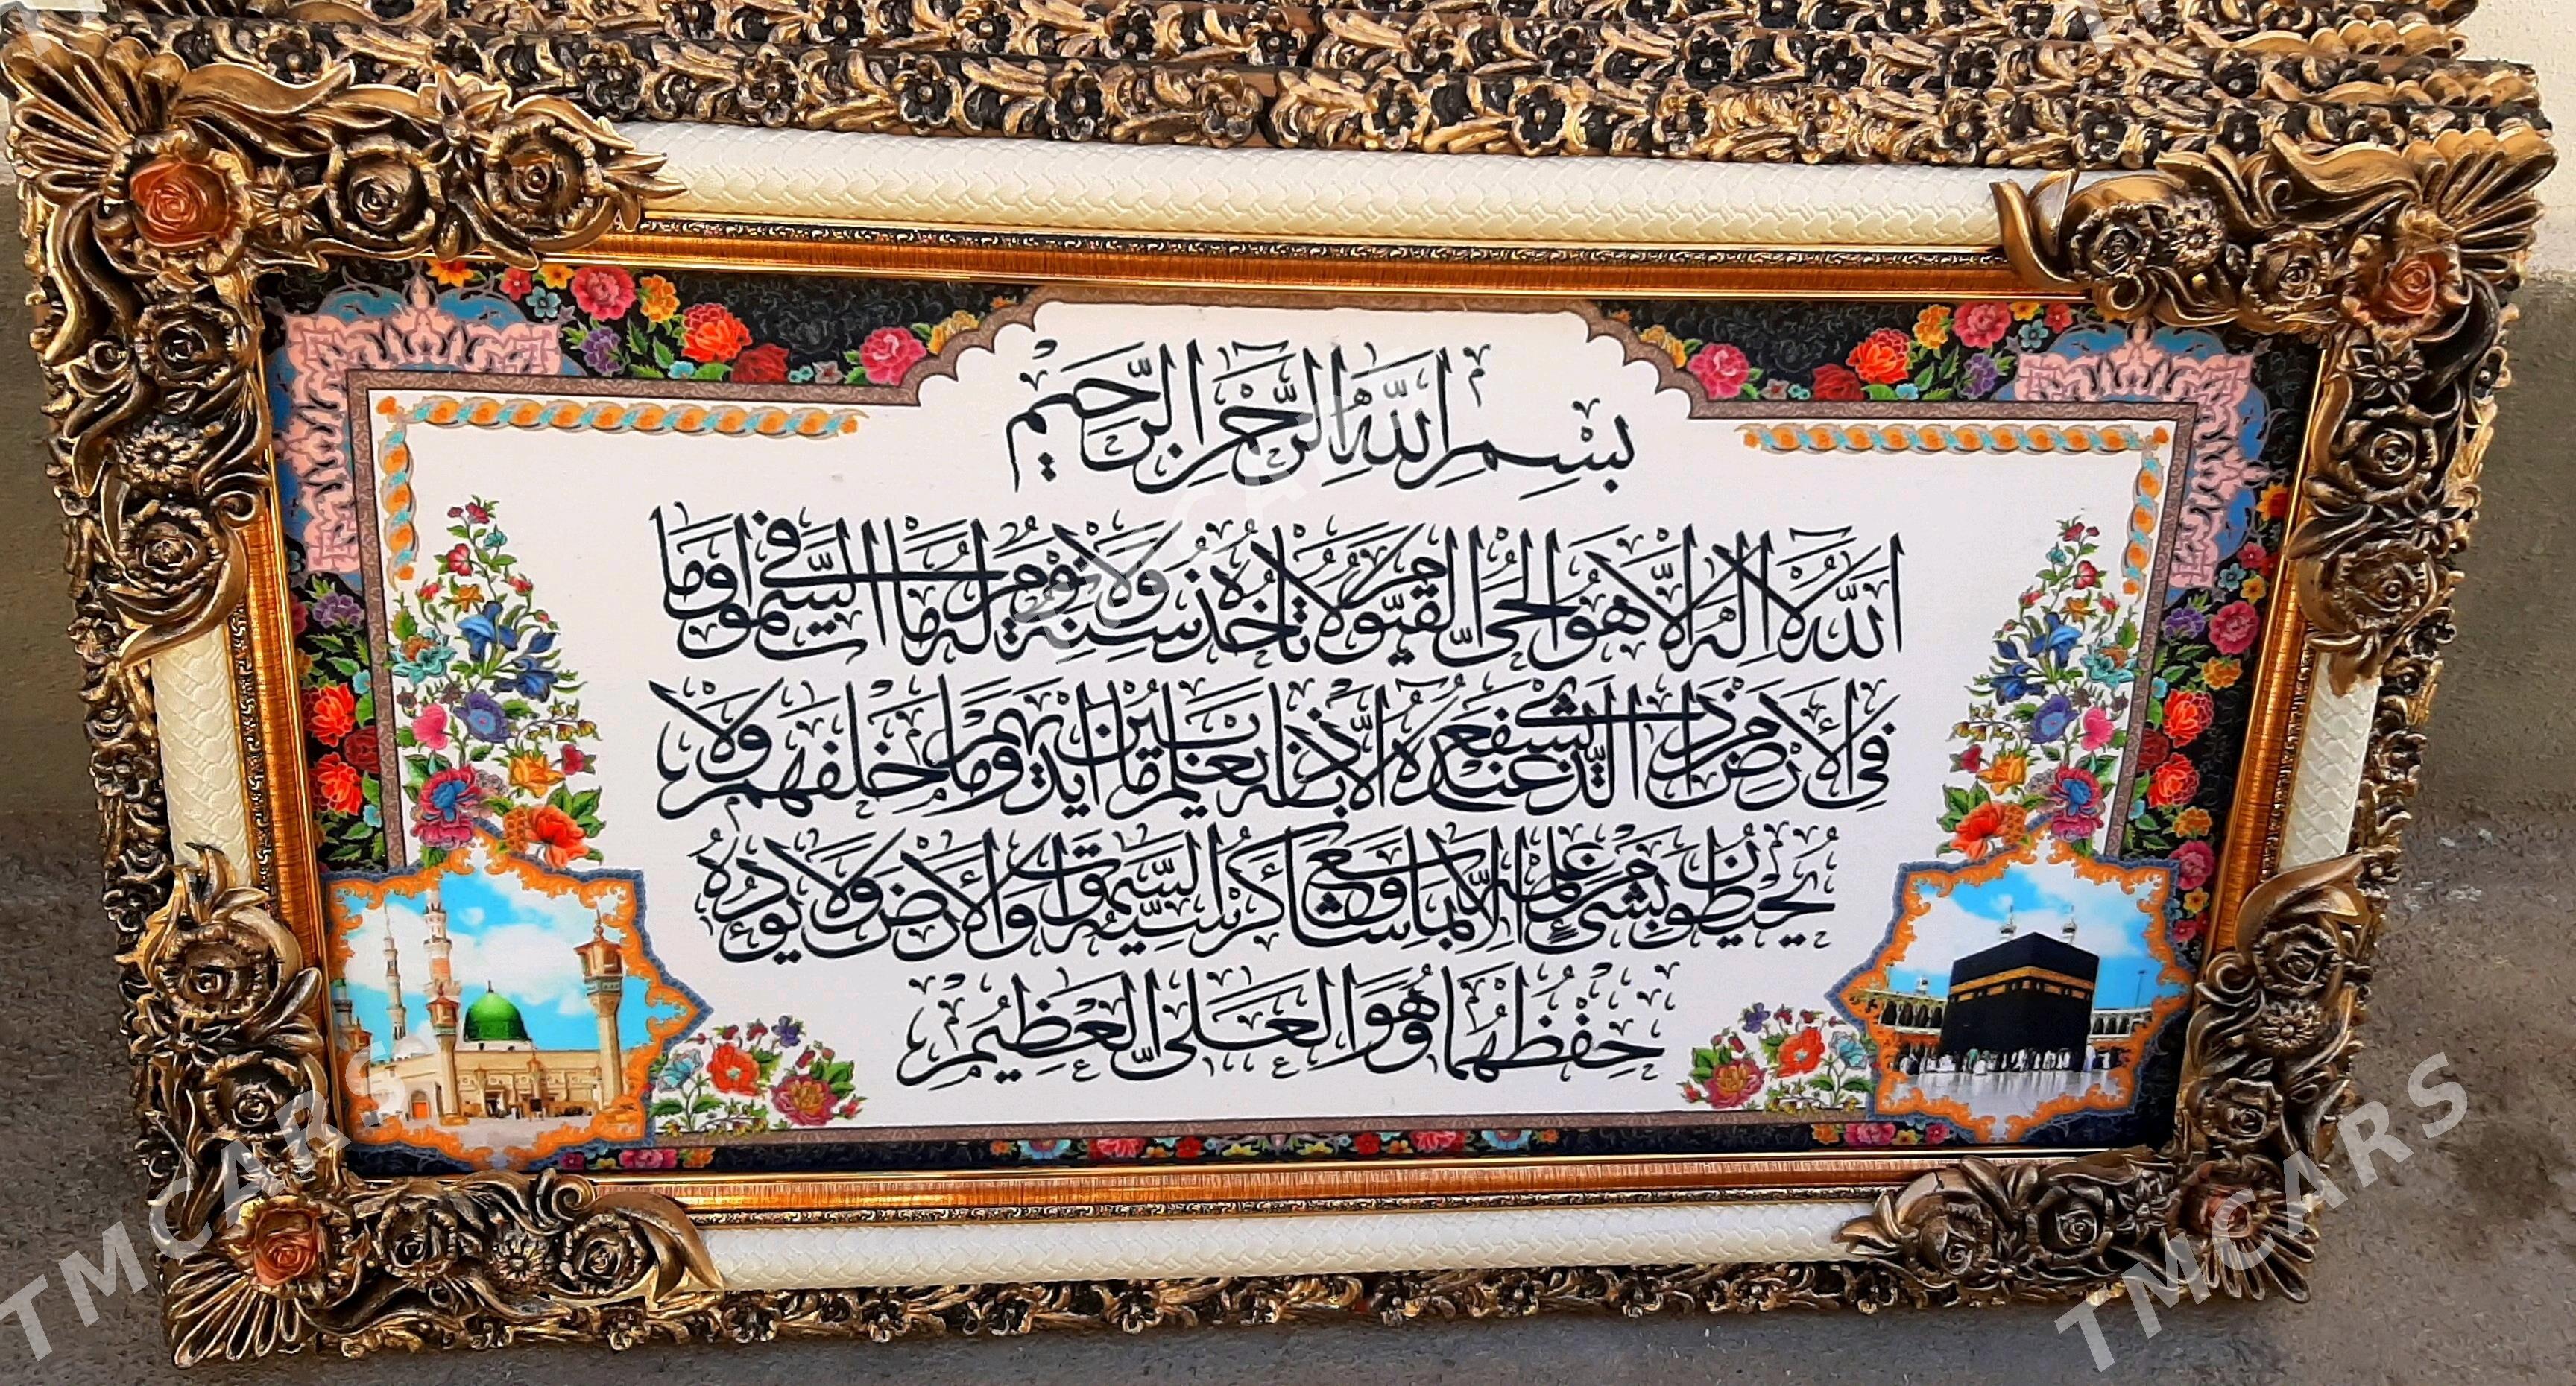 بِسْمِ اللَّهِ الرَّحْمَٰنِ الرَّحِيمِ
اللَّهُ لَا إِلَٰهَ إِلَّا هُوَ الْحَيُّ الْقَيُّومُ لَا تَأْخُذُهُ سِنَةٌ وَلَا نَوْمٌ لَهُ مَا فِي السَّمٰوَاتِ وَمَا
فِي الْأَرْضِ مَنْ ذَا الَّذِي يَشْفَعُ عِنْدَهُ إِلَّا بِإِذْنِهِ يَعْلَمُ مَا بَيْنَ أَيْدِيهِمْ وَمَا خَلْفَهُمْ وَلَا
يُحِيطُونَ بِشَيْءٍ مِنْ عِلْمِهِ إِلَّا بِمَا شَاءَ وَسِعَ كُرْسِيُّهُ السَّمٰوَاتِ وَالْأَرْضَ وَلَا يَئُودُهُ
حِفْظُهُمَا وَهُوَ الْعَلِيُّ الْعَظِيمُ
TMCARS
TMCARS
TMCARS